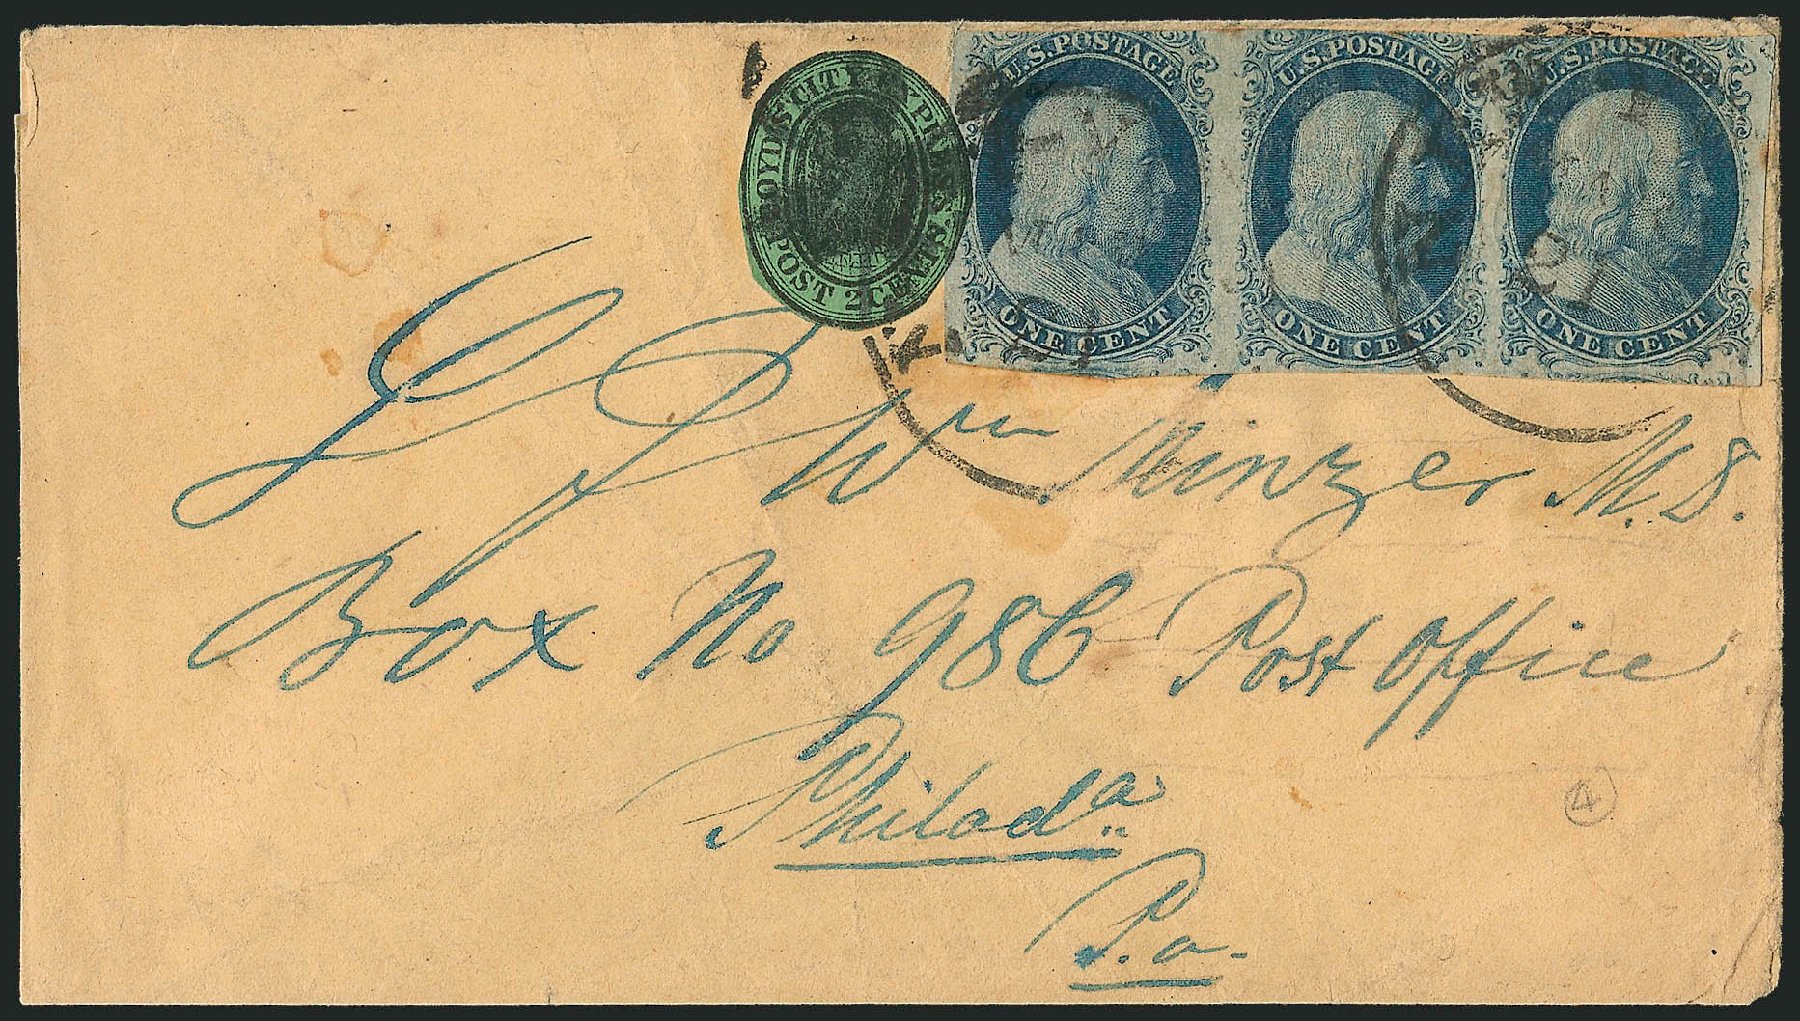 BOYD'S CITY EXPRESS
POST 2 CENTS
U.S. POSTAGE
ONE CENT
U.S. POSTAGE
ONE CENT
U.S. POSTAGE
ONE CENT
Wm Minzer M.D.
Box No 986 Post Office
Philada
Pa.
4